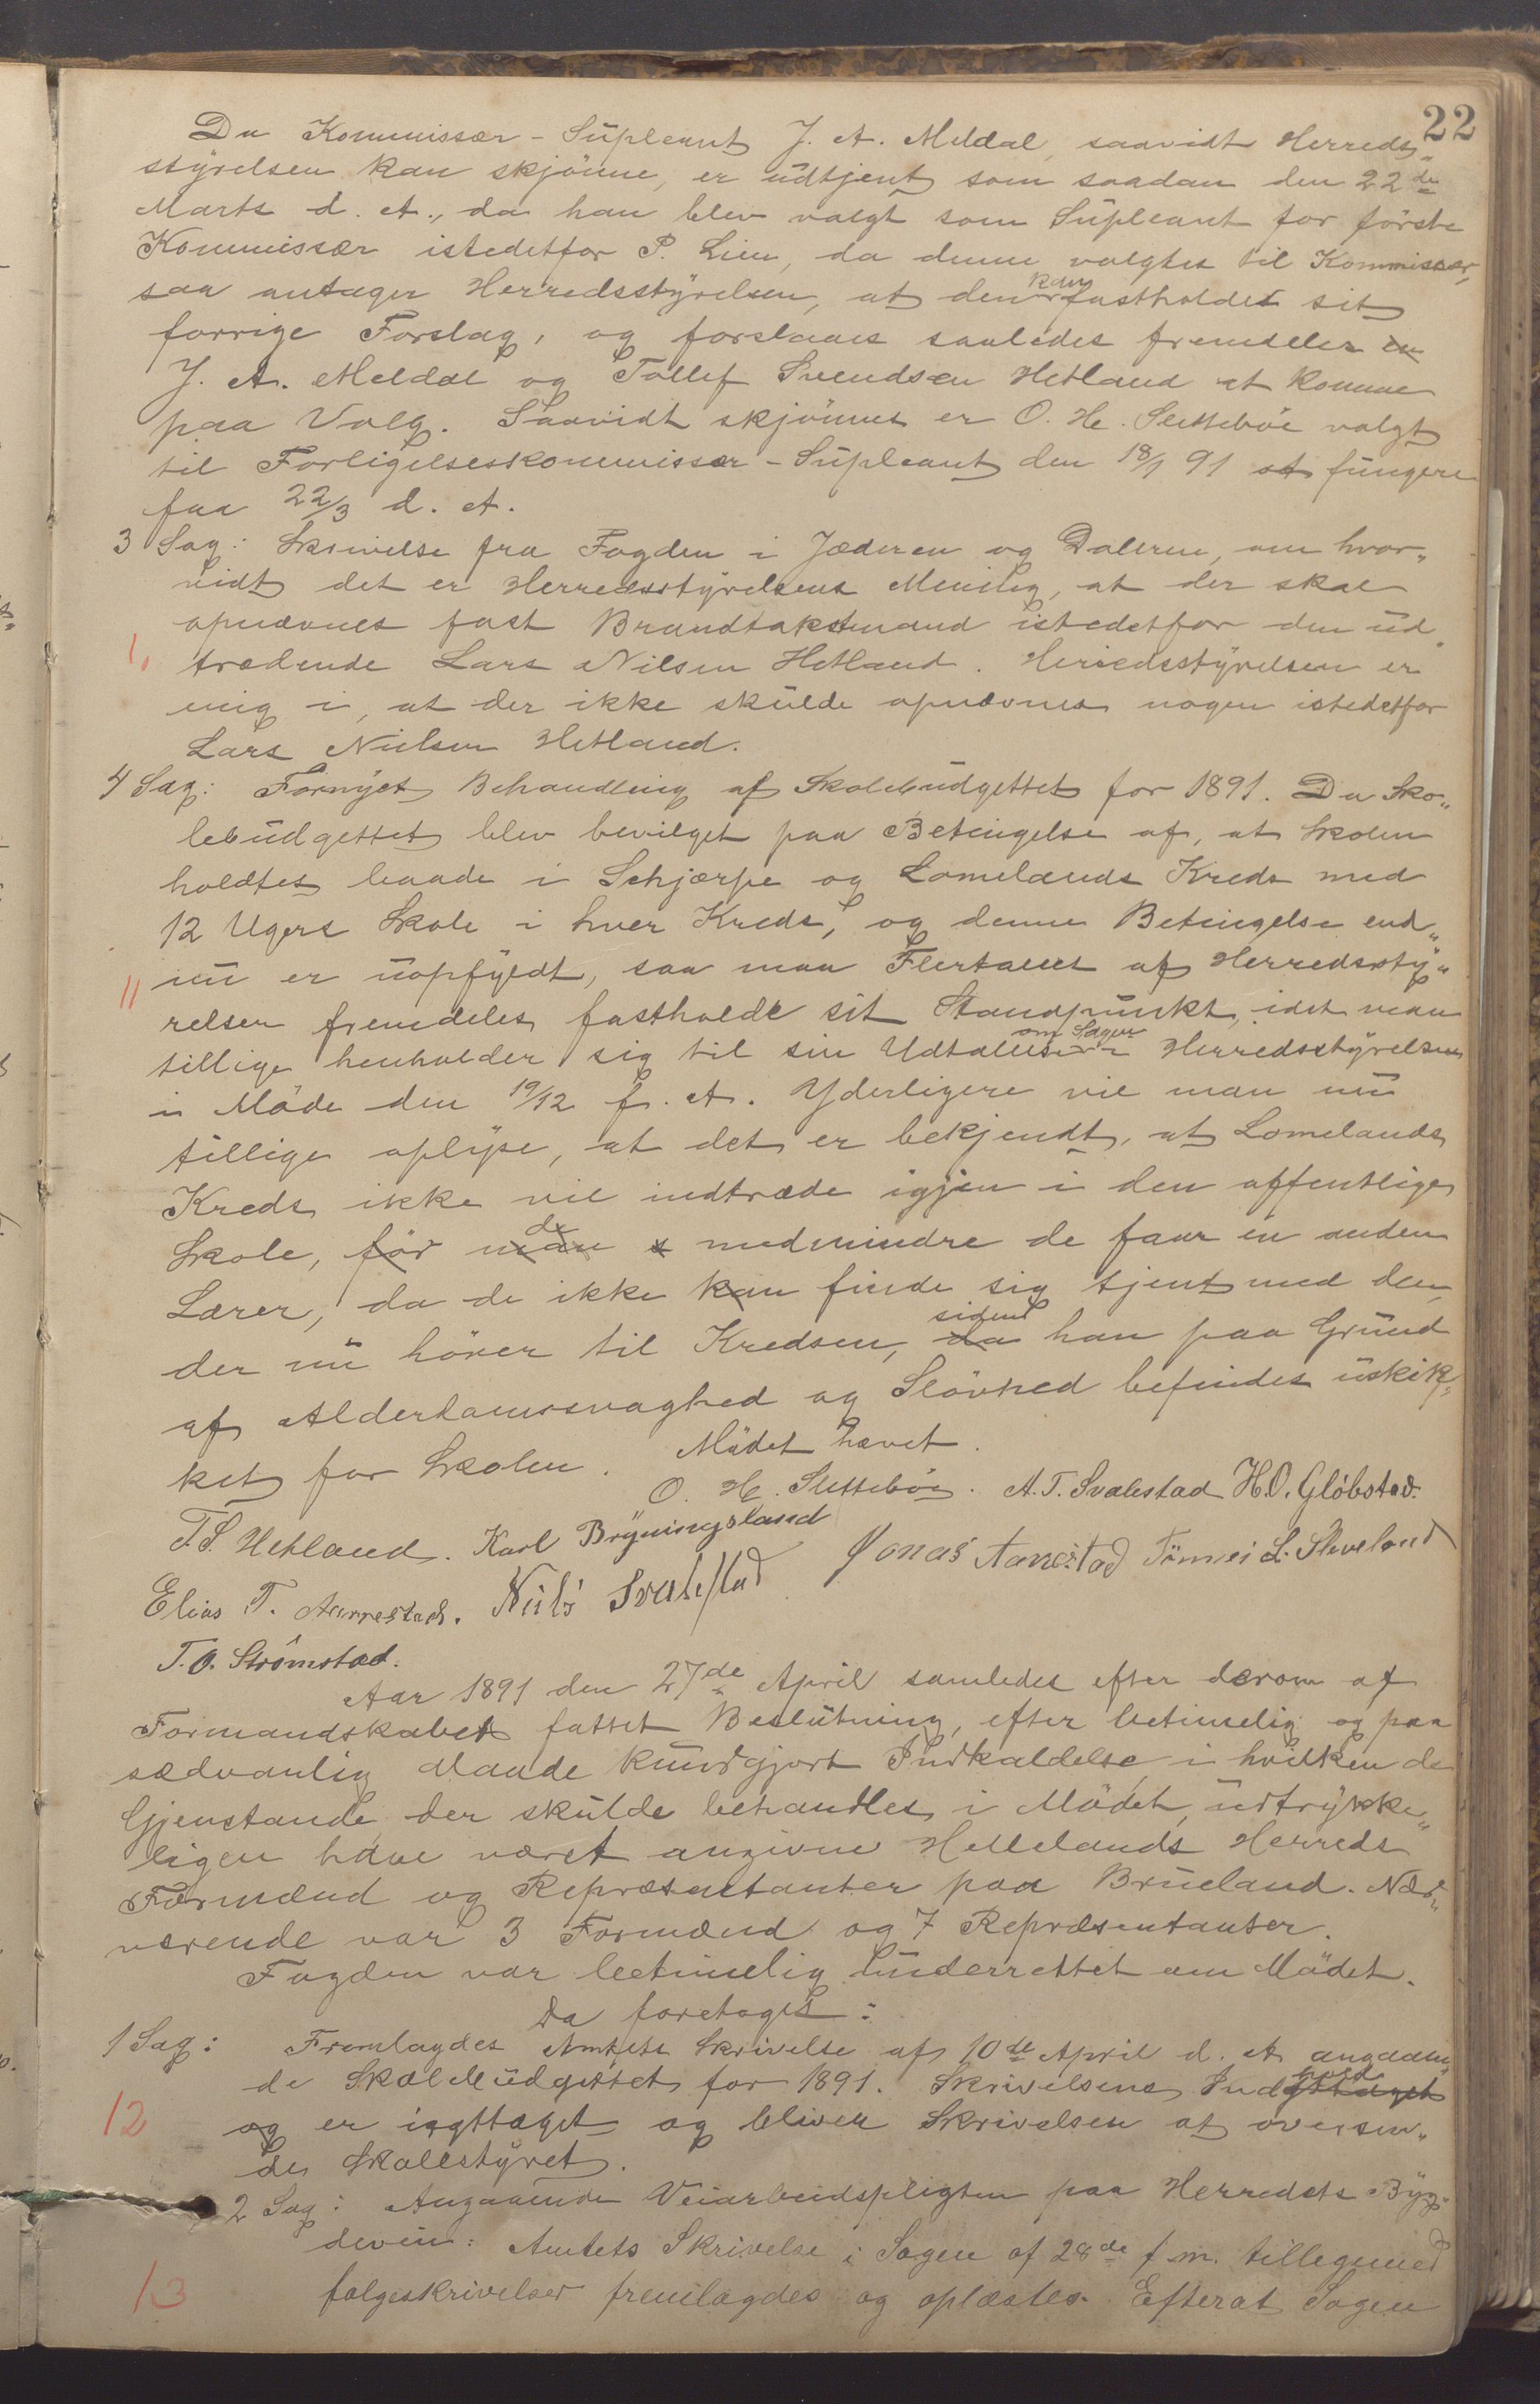 22
Da Kommissær-Supleant J. A. Meldal, saavidt Herreds„
styrelsen kan skjönne, er udtjent som saadan den 22de
Marts d. A., da han blev valgt som Supleant for förste
Kommissær istedetfor P. Lien, da denne valgtes til Kommissær,
kan
saa antager Herredsstyrelsen, at den fastholder sit
forrige Forslag, og forslaaes saaledes fremdeles en
J. A. Meldal og Tollef Svendsen Hetland at komme
paa Valg. Saavidt skjönnes er O. H. Sletteböe valgt
til Forligelseskommissær-Supleant den 18/1 91 at fungere
fra 22/3 d. A.
3 Sag: Skrivelse fra Fogden i Jæderen og Dalerne, om hvor„
vidt det er Herredsstyrelsens Mening, at der skal
opnævnes fast Brandtakstmand istedetfor den ud„
trædende Lars Nilsen Hetland. Herredsstyrelsen er
enig i, at der ikke skulde opnævnes nogen istedetfor
Lars Nielsen Hetland.
4 Sag: Fornyet Behandling af Skolebudgettet for 1891. Da Sko„
lebudgettet blev bevilget paa Betingelse af, at Skolen
holdtes baade i Schjærpe og Lomelands Kreds med
12 Ugers Skole i hver Kreds, og denne Betingelse end„
11
nu er uopfyldt, saa maa Flertallet af Herredssty„
relsen fremdeles fastholde sit Standpunkt, idet man
om Sagen
tillige henholder sig til sin Udtalelse i Herredsstyrelsen
i Möde den 19/12 f. A. Yderligere vil man nu
tillige oplyse, at det er bekjendt, at Lomelands
Kreds ikke vil indtræde igjen i den offentlige
de
Skole, för man medmindre de faar en anden
Lærer, da de ikke kan finde sig tjent med den
siden
der nu hörer til Kredsen, da han paa Grund
af Alderdomssvaghed og Slövhed befindes uskik„
ket for Skolen. Mödet hævet.
O. H. Sletteböe. A. T. Svalestad H. O. Glöbstad.
T. S. Hetland. Karl Bryningsland
Jonas Aarrestad Tönnes L. Sleveland
Elias T. Aarrestad. Nils Svalestad
T. O. Strömstad.
Aar 1891 den 27de April samledes efter derom af
Formandskabet fattet Beslutning, efter betimelig og paa
sædvanlig Maade kundgjort Indkaldelse i hvilken de
Gjenstande, der skulde behandles i Mödet, udtrykke„
ligen have været angivne Hellelands Herreds
Formænd og Repræsentanter paa Brueland. Nær„
værende var 3 Formænd og 7 Repræsentanter.
Fogden var betimelig underrettet om Mödet.
Da foretoges:
1 Sag: Fremlagdes Amtets Skrivelse af 10de April d. A. angaaen„
hold
de Skolebudgettet for 1891. Skrivelsens Indgttaget
12
og er iagttaget og bliver Skrivelsen at oversen„
des Skolestyret.
2 Sag: Angaaende Veiarbeidspligten paa Herredets Byg„
deveie: Amtets Skrivelse i Sagen af 28de f. m. tilligemed
13
følgeskrivelser fremlagdes og oplæstes. Efterat Sagen